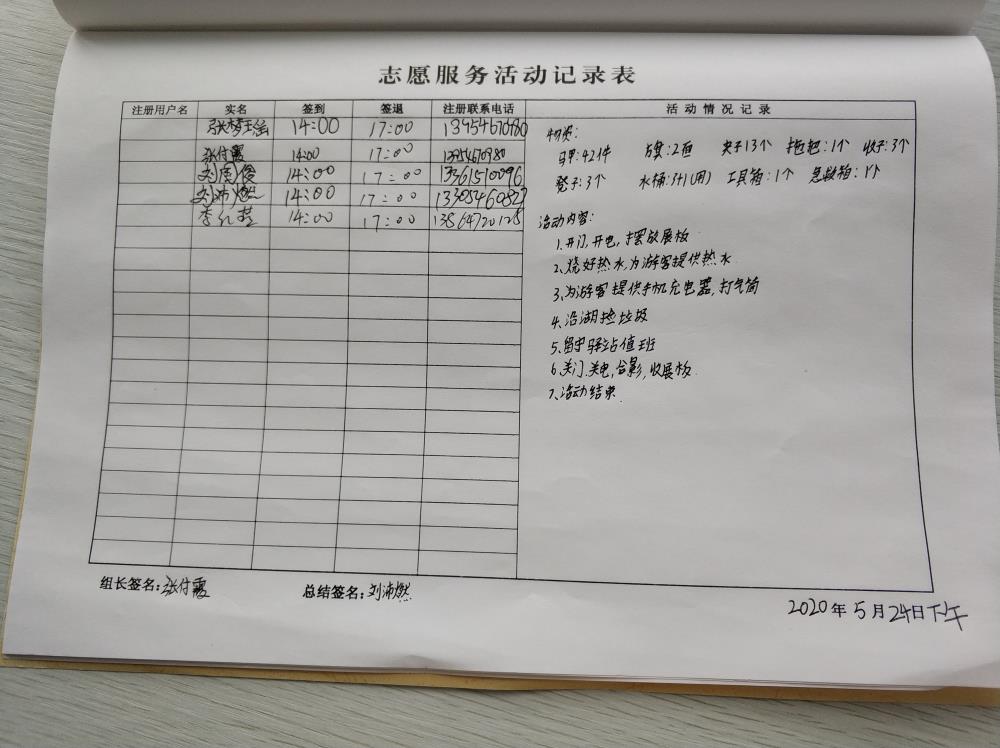 志愿服务活动记录表
注册用户名 实名 签到 签退 注册联系电话 活动情况记录
14:00 17:00 13954670980
张付霞 14:00 17:00 13954670980
刘周俊 14:00 17:00 13361510096
刘沛燃 14:00 17:00
李红 14:00 17:00 13864720128
物资:
马甲:42件 方旗:2面 夹子13个 拖把:1个 收子:3个
凳子:3个 水桶:3个(用) 工具箱:1个 急救箱:1个
活动内容:
1.开门,开电,摆放展板
2、烧好热水,为游客提供热水
3、为游客提供手机充电器,打气筒
4、沿湖捡垃圾
5、留守驿站值班
6、关门.关电,合影,收展板
7、活动结束.
组长签名:张付霞 总结签名:刘沛燃
2020年5月24日下午